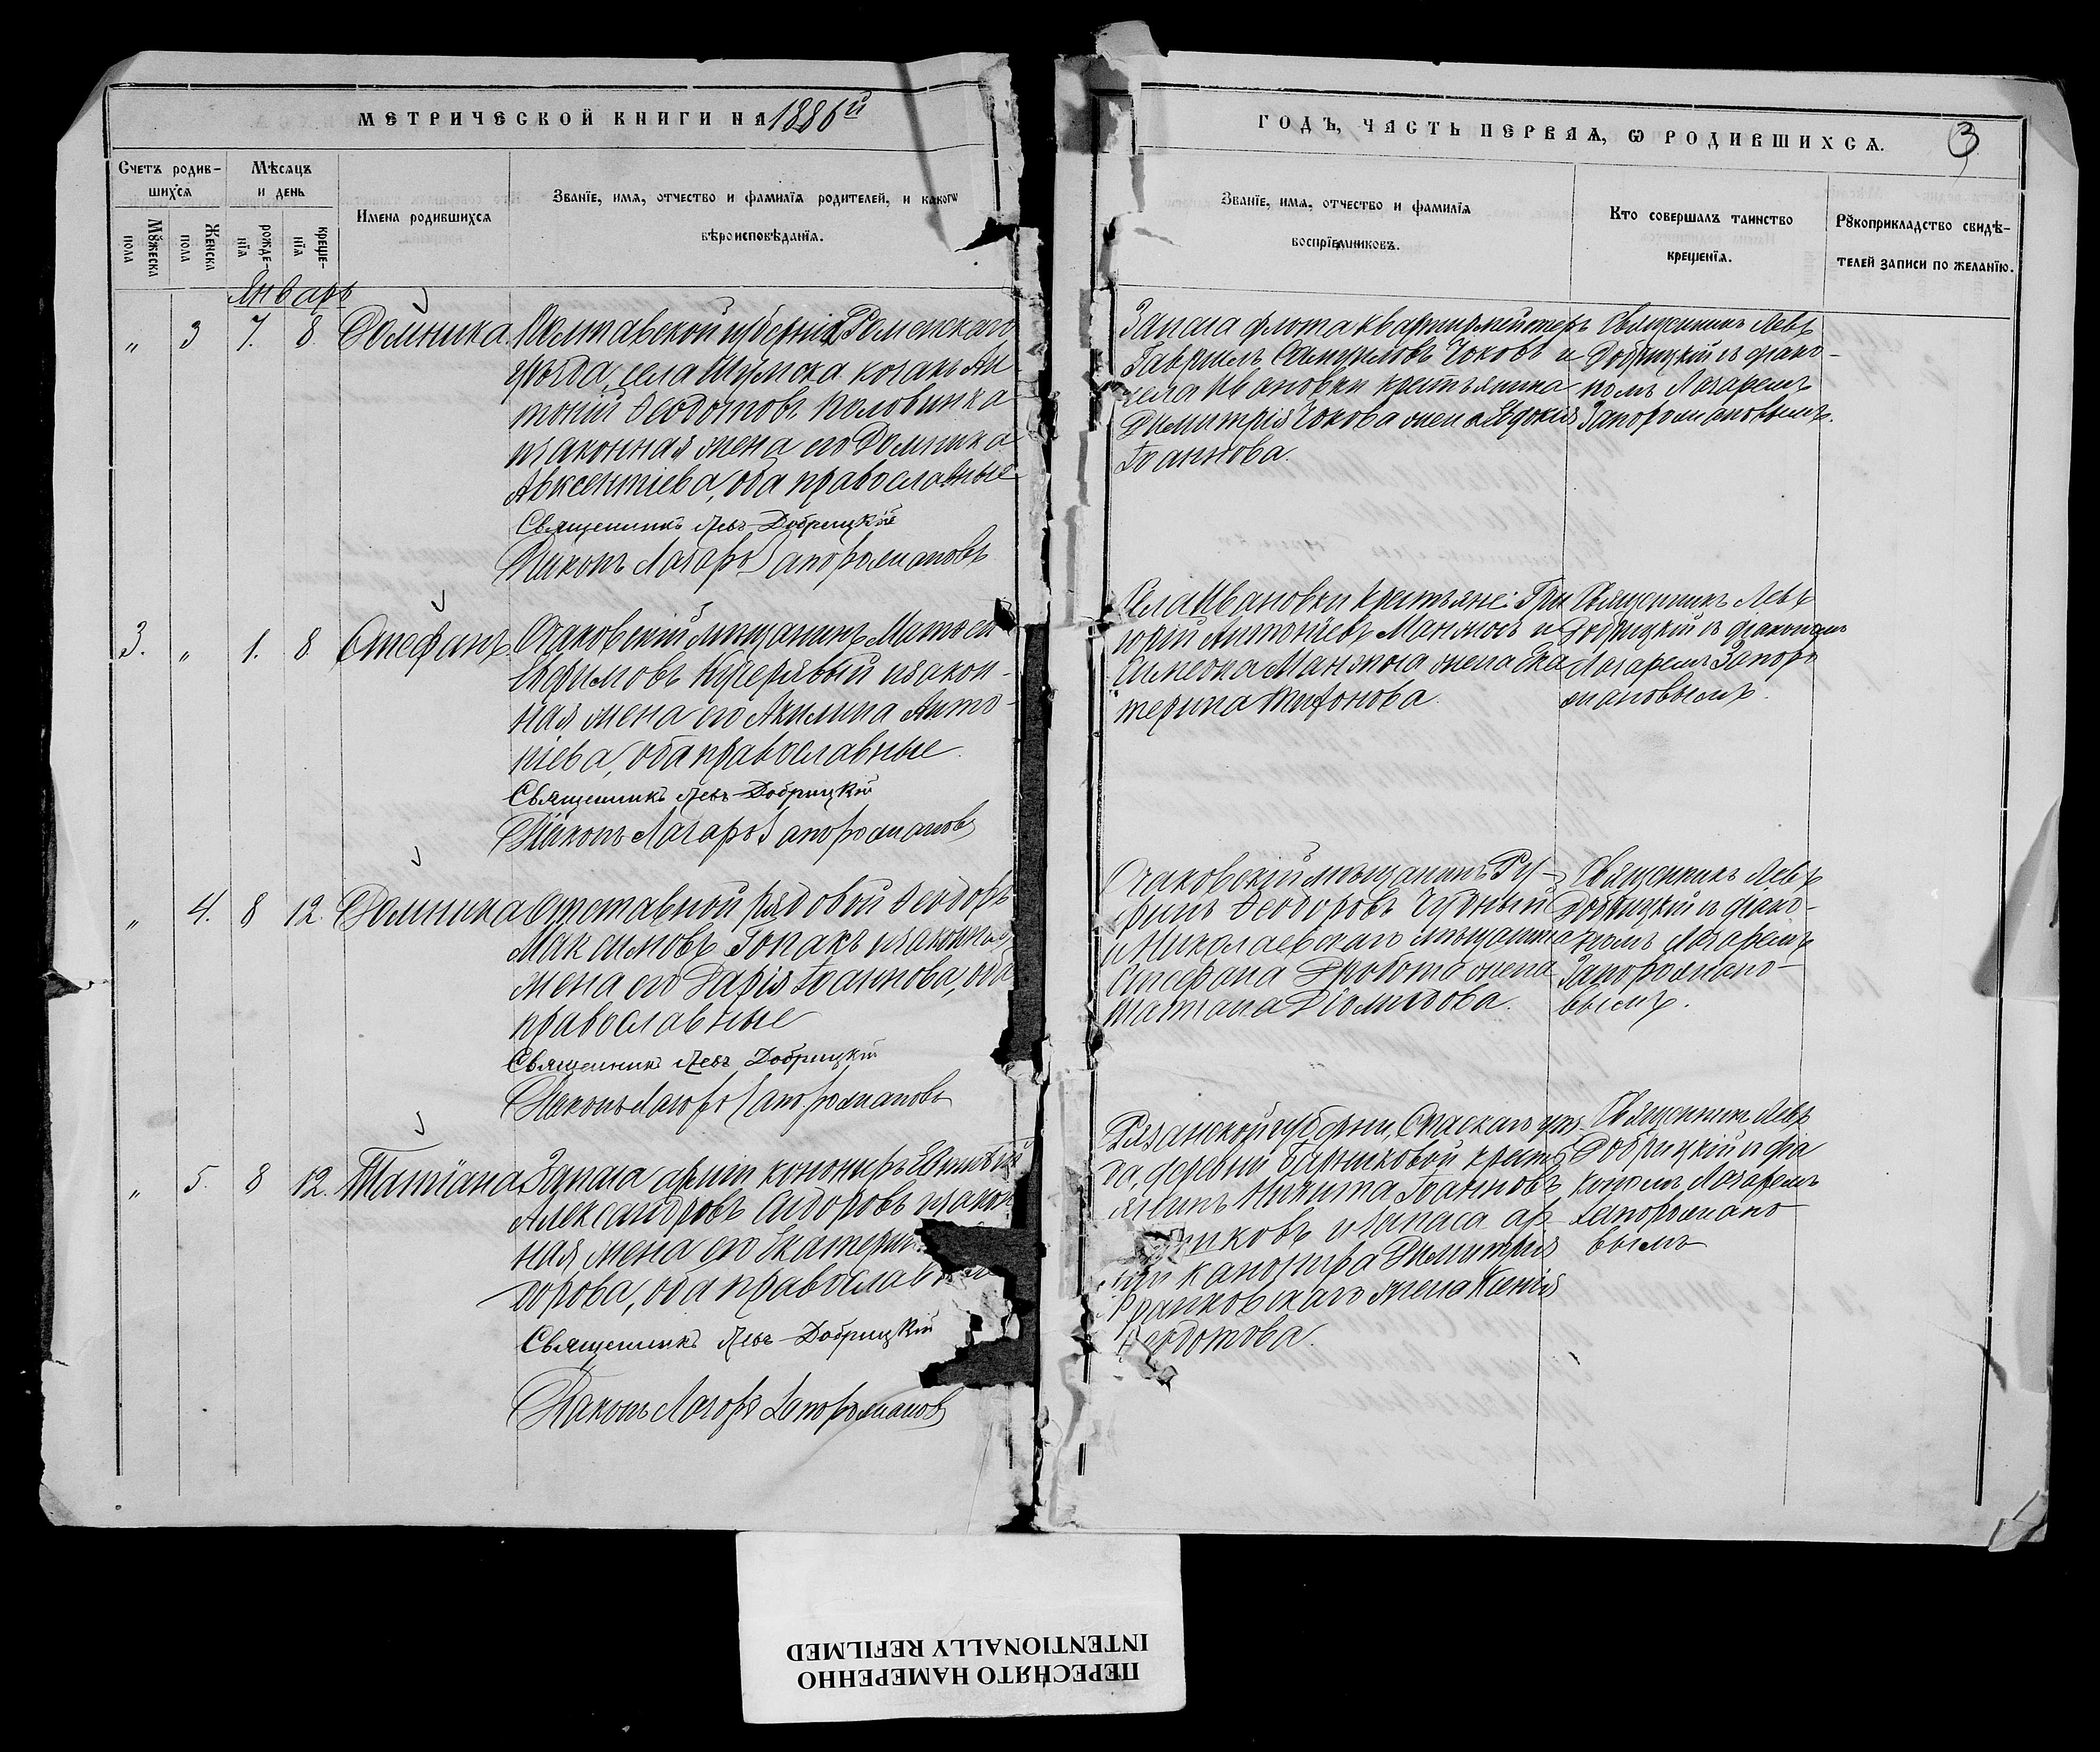 МЕТРИЧЕСКОЙ КНИГИ НА 1886й
ГОДЪ, ЧАСТЬ ПЕРВАЯ, Ѡ РОДИВШИХСЯ.
3
Счетъ родив-
шихся
Мѣсяцъ
и день
Мꙋжеска
пола
Женска
пола
рожде-
нїя
креще-
нїя
Имена родившихся
Званїе, имя, отчество и фамилїя родителей, и какогѡ
вѣроисповѣданїя.
Званїе, имя, отчество и фамилїя
воспрїемниковъ.
Кто совершалъ таинство
крещенїя.
Рꙋкоприкладство свидѣ-
телей записи по желанїю.
Январь
" 3 7. 8. Домника.
Полтавской губерніи Роменскаго
уѣзда, села Шумска козакъ Ан
тоній Ѳеодотовъ Половинка
и законная жена его Домника
Авксентіева, оба православные
Священникъ Левъ Добрицкій
Діаконъ Лазарь Запорожановъ
Запаса флота квартирмейстеръ
Гавріилъ Самуиловъ Чоковъ и
села Ивановки крестьянина
Димитрія Чокова жена Евдокія
Іоаннова.
Священникъ Левъ
Добрицкій съ діако-
номъ Лазаремъ
Запорожановымъ.
3. " 1. 8 Стефанъ.
Очаковскій мѣщанинъ Матѳей
Ефимовъ Кучерявый и закон-
ная жена его Акилина Анто-
ніева, оба православные.
Священникъ Левъ Добрицкій
Діаконъ Лазарь Запорожановъ
Села Ивановки крестьяне: Гри
горій Антоніевъ Манжосъ и
Симеона Манжоса жена Ека
терина Тифонова.
Священникъ Левъ
Добрицкій съ діакономъ
Лазаремъ Запоро
жановымъ.
" 4. 8 12. Домника
Отставной рядовой Ѳеодоръ
Максимовъ Гопакъ и законная
жена его Дарія Іоаннова, оба
православные
Священникъ Левъ Добрицкій
Діаконъ Лазарь Запорожановъ
Очаковскій мѣщанинъ Гу-
рій Ѳеодоровъ Чудный
и Николаевскаго мѣщанина
Стефана Дробота жена
Татіана Діомидова.
Священникъ Левъ
Добрицкій съ діако-
номъ Лазаремъ
Запорожано-
вымъ.
" 5. 8 12. Татіана
Запаса арміи канониръ Евтихій
Александровъ Сидоровъ и закон
ная жена его Екатерин
дорова, оба православные
Священникъ Левъ Добрицкій
Діаконъ Лазарь Запорожановъ
Рязанской губерніи, Спаскаго уѣз-
да, деревни крестья
янинъ Никита Іоанновъ
иковъ и запаса ар
міи канонира Димитрія
Франковскаго жена Ксенія
Ѳеодотова.
Священникъ Левъ
Добрицкій съ діа
кономъ Лазаремъ
Запорожано
вымъ
ПЕРЕСНЯТО НАМЕРЕННО
INTENTIONALLY REFILMED